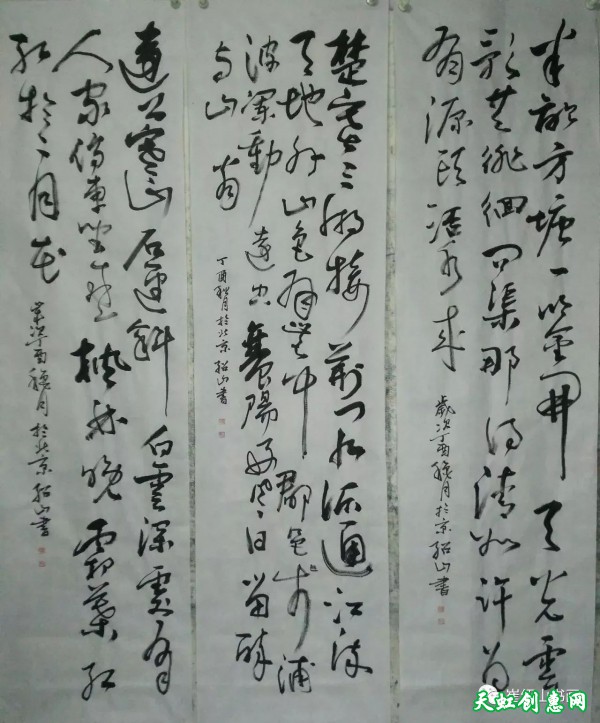 半畝方塘一鉴開天光雲
影共徘徊问渠那得清如许为
有源头活水来
歲次丁酉穐月於京绍山書
楚塞三湘接荆门九派通江流
天地外山色有无中郡邑浮前浦
波澜動遠空襄陽好风日留醉
与山翁
丁酉秋月於北京绍山書
遠上寒山石迳斜白雲深處有
人家停車坐爱楓林晚霜葉红
於二月花
歲次丁酉穐月於北京绍山書
天虹创惠网